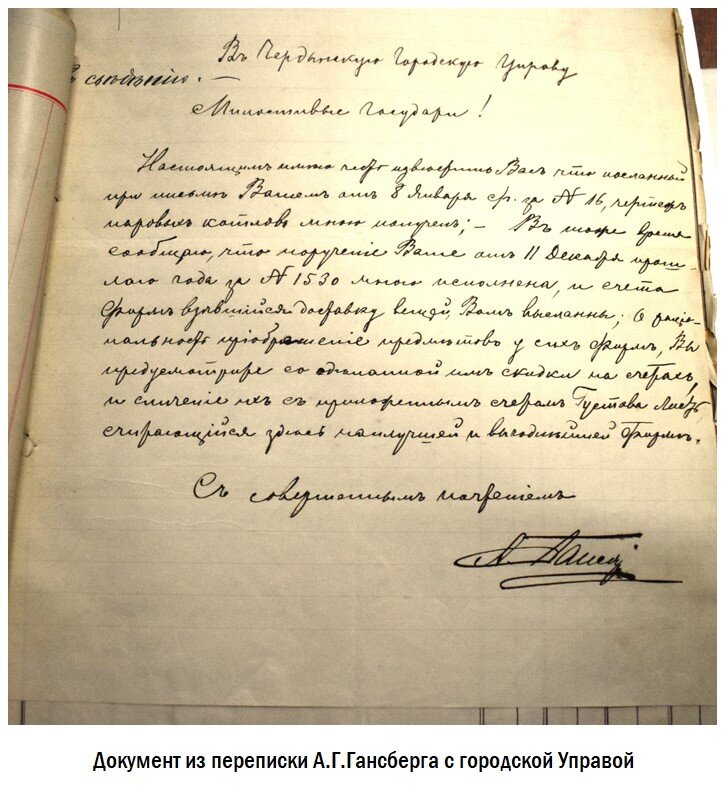 Въ Чердынскую Городскую Управу
Къ свѣдѣнію.
Милостивые Государи!
Настоящимъ имѣю честь извѣстить Васъ что посланный
при письмѣ Вашемъ отъ 8 Января с/г. за № 16, чертежъ
паровыхъ котловъ мною полученъ; — Въ тоже время
сообщаю, что порученіе Ваше отъ 11 Декабря прош-
лаго года за № 1530 мною исполнена, и счета
Фирмъ взявшійся доставку вещей, Вамъ высланны; О раціо-
нальность пріобрѣшеніе предмѣтовъ у сихъ Фирмъ, Вы
предусмотрите со сдѣланной имъ скидки на счетахъ,
и сличеніе ихъ съ приложеннымъ счетомъ Густава Листъ
считающійся здѣсь наилучшей и выгоднѣйшей Фирмъ.
Съ совершеннымъ почтеніемъ
А. Ганс
Документ из переписки А.Г.Гансберга с городской Управой